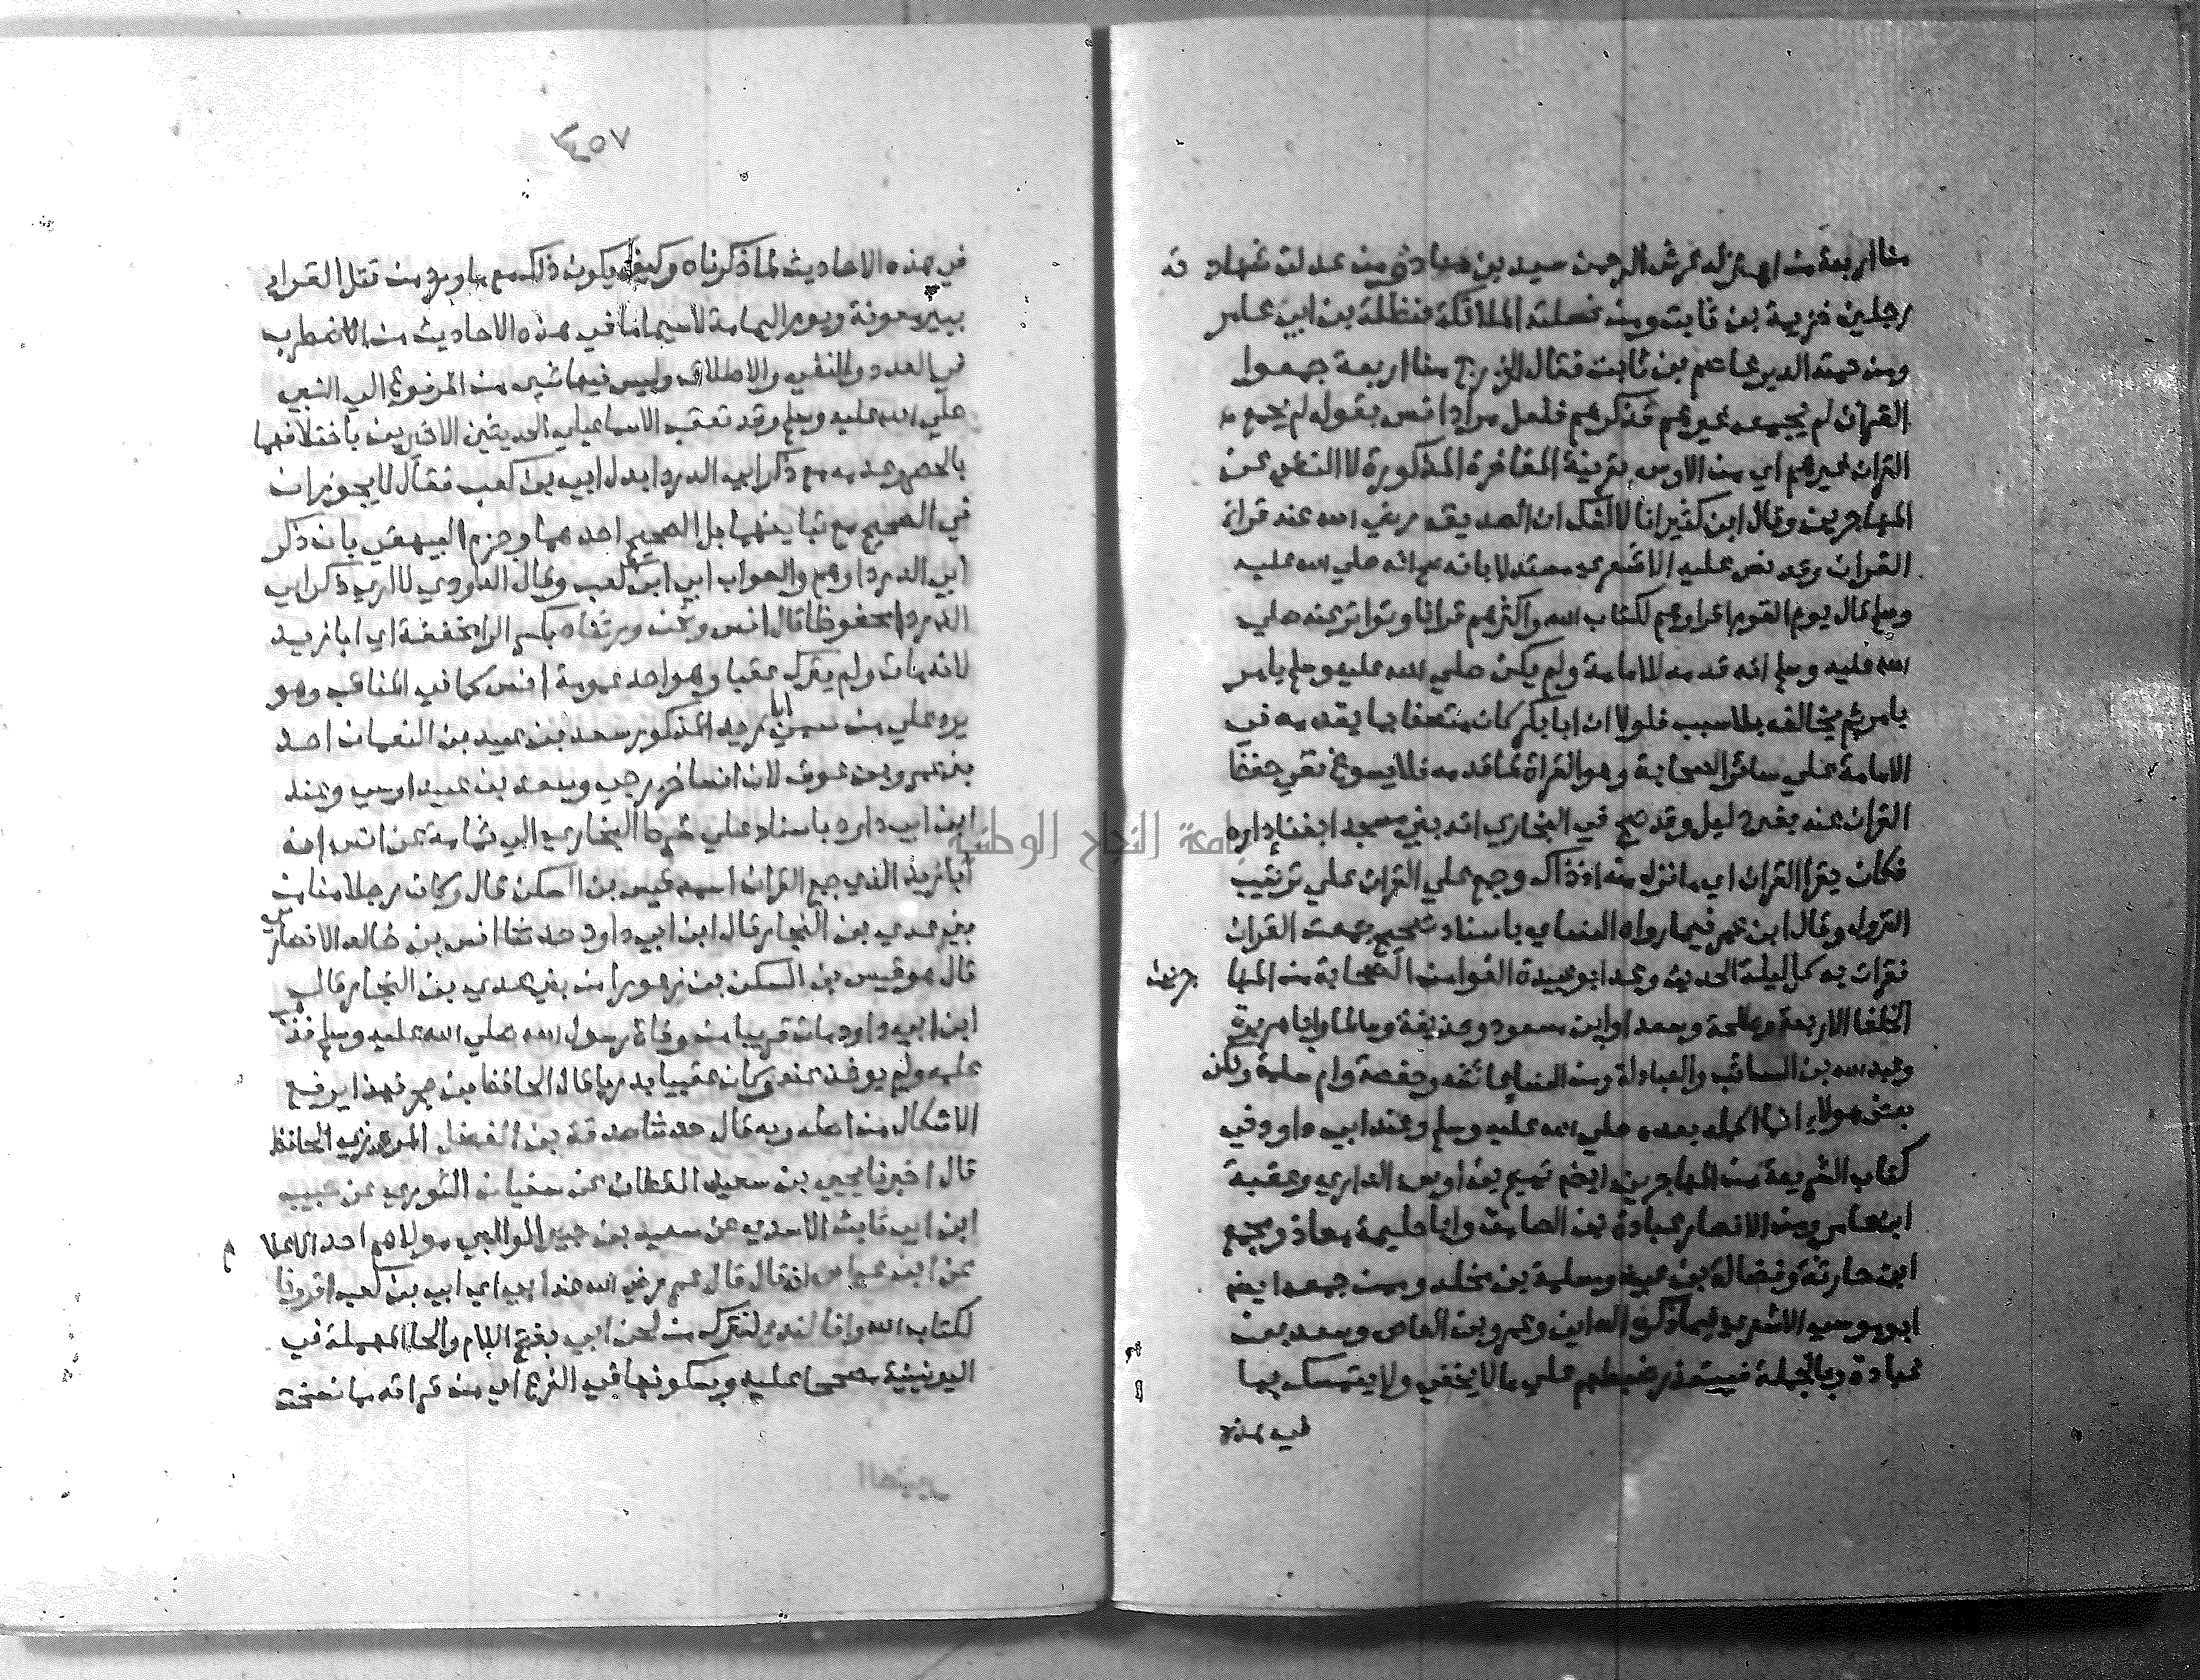 منا اربعة من اهتز له عرش الرحمن سعيد بن معاذ ومن عدلت شهاد ته
رجلين خزيمة بن ثابت ومن غسلته الملائكة حنظلة بن ابي عامر
ومن حمته الدبر عاصم بن ثابت فقال الخزرج منا اربعة جمعوا
القران لم يجمعه غيرهم فذكرهم فلعل مراد انس بقوله لم يجمع
القران غيرهم اي من الاوس بقرينة المفاخرة المذكورة لا النفي عن
المهاجرين وقال ابن كثير انا لا اشك ان الصديق رضي الله عنه قرا
القران وقد نص عليه الاشعري مستدلا بانه صح انه صلي الله عليه
وسلم قال يوم القوم اقراوهم لكتاب الله واكثرهم قرانا وتواتر عنه صلي
الله عليه وسلم انه قدمه للامامة ولم يكن صلي الله عليه وسلم يامر
بامر ثم يخالفه بلا سبب فلولا ان ابا بكر كان متصفا بما يقدمه في
الامامة علي سائر الصحابة وهو القراة لما قدمه فلا يسوغ نفي حفظ
القران عنه بغير دليل وقد صح في البخاري انه بني مسجدا بفنا داره
فكان يقرا القران اي ما نزل منه اذ ذاك وجمع علي القران علي ترتيب
النزول وقال ابن عمر فيما رواه النساي باسناد صحيح جمعت القران
فقرات به كل ليلة الحديث وعد ابو عبيدة القرا من الصحابة من المها جرين
الخلفا الاربعة وطلحة وسعدا وابن مسعود وحذيفة وسالما وابا هريرة
وعبد الله بن السائب والعبادلة ومن النسا عائشة وحفصة وام سلمة ولكن
بعض هولاء انما اكمله بعده صلي الله عليه وسلم وعند ابي داود في
كتاب الشريعة من المهاجرين ايضا تميم بن اوس الداري وعقبة
ابن عامر ومن الانصار عبادة بن الصامت وابا حليمة معاذ ومجمع
ابن حارثة وفضالة بن عبيد ومسلمة بن مخلد وممن جمعه ايضا
ابو موسي الاشعري فيما ذكره الداني وعمرو بن العاص وسعد بن
عبادة وبالجملة فيتعذر ضبطهم علي ما لا يخفي ولا يتمسك بما
في هذه
٣٥٧
في هذه الاحاديث لما ذكرناه وكيف يكون ذلك مع ما ورد من قتل القرا
ببير معونة ويوم اليمامة لا سيما ما في هذه الاحاديث من الاضطرب
في العدد والنفي والاطلاق وليس فيها شي من المرفوع الي النبي
صلي الله عليه وسلم وقد تعقب الاسماعيلي الحديثين الاخيرين باختلافهما
بالحصر وعدمه مع ذكر ابي الدردا بدل ابي بن كعب فقال لا يجوز ان
في الصحيح مع تباينهما بل الصحيح احدهما وجزم البيهقي بان ذكر
ابي الدردا وهم والصواب ابي ابن كعب وقال الداودي لا اري ذكر ابي
الدردا محفوظا قال انس ونحن ورثناه بكسر الرا مخففة اي ابا زيد
لانه مات ولم يترك عقبا وهو احد عمومة انس كما في المناقب وهو
يرد علي من سمي ابا زيد المذكور سعد بن عبيد بن النعمان احد
بني عمرو بن عوف لان انسا خزرجي وسعد بن عبيد اوسي وعند
ابن ابي داود باسناد علي شرط البخاري الي ثمامة عن انس ان
ابا زيد الذي جمع القران اسمه قيس بن السكن قال وكان رجلا منا من
بني عدي بن النجار قال ابن ابي داود حدثنا انس بن خالد الانصاري
قال هو قيس بن السكن بن زعورا من بني عدي بن النجار قال
ابن ابي داود مات قريبا من وفاة رسول الله صلي الله عليه وسلم فذهب
علمه ولم يوخذ عنه وكان عقبيا بدريا قال الحافظ بن حجر فهذا يرفع
الاشكال من اصله وبه قال حدثنا صدقة بن الفضل المروزي الحافظ
قال اخبرنا يحيي بن سعيد القطان عن سفيان الثوري عن حبيب
ابن ابي ثابت الاسدي عن سعيد بن جبير الوالبي مولاهم احد الاعلا م
عن ابن عباس انه قال قال عمر رضي الله عنه ابي اي ابي بن كعب اقرونا
لكتاب الله وانا لندع لنترك من لحن ابي بفتح اللام والحا المهملة في
اليونينية مصححا عليه وبسكونها في الفرع اي من قراته ما نسخت
جامعة النجاح الوطنية